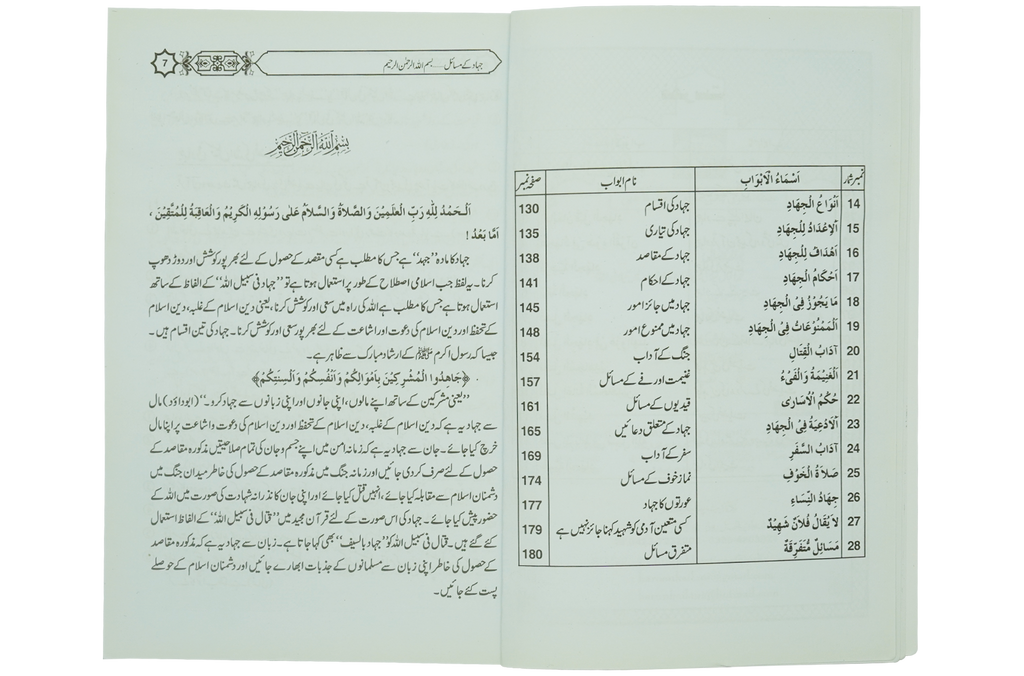 نمبر شمار اَسْمَاءُ الْاَبْوَابِ نام ابواب صفحہ نمبر
14 اَنْوَاعُ الْجِهَادِ جہاد کی اقسام 130
15 اَلْاِعْدَادُ لِلْجِهَادِ جہاد کی تیاری 135
16 اَهْدَافُ لِلْجِهَادِ جہاد کے مقاصد 138
17 اَحْكَامُ الْجِهَادِ جہاد کے احکام 141
18 مَا يَجُوْزُ فِي الْجِهَادِ جہاد میں جائز امور 145
19 اَلْمَمْنُوْعَاتُ فِي الْجِهَادِ جہاد میں ممنوع امور 148
20 آدَابُ الْقِتَالِ جنگ کے آداب 154
21 اَلْغَنِيْمَةُ وَالْفَيْءُ غنیمت اور فے کے مسائل 157
22 حُكْمُ الْاُسَارٰى قیدیوں کے مسائل 161
23 اَلْاَدْعِيَةُ فِي الْجِهَادِ جہاد کے متعلق دعائیں 165
24 آدَابُ السَّفَرِ سفر کے آداب 169
25 صَلَاةُ الْخَوْفِ نماز خوف کے مسائل 174
26 جِهَادُ النِّسَاءِ عورتوں کا جہاد 177
27 لَا يُقَالُ فُلَانٌ شَهِيْدٌ کسی متعین آدمی کو شہید کہنا جائز نہیں ہے 179
28 مَسَائِلُ مُتَفَرِّقَةٌ متفرق مسائل 180
جہاد کے مسائل.....بسم اللہ الرحمٰن الرحیم 7
بِسْمِ اللهِ الرَّحْمٰنِ الرَّحِيْمِ
اَلْحَمْدُ لِلّٰهِ رَبِّ الْعٰلَمِيْنَ وَالصَّلَاةُ وَالسَّلَامُ عَلٰى رَسُوْلِهِ الْكَرِيْمِ وَالْعَاقِبَةُ لِلْمُتَّقِيْنَ ،
اَمَّا بَعْدُ !
جہاد کا مادہ ”جہد“ ہے جس کا مطلب ہے کسی مقصد کے حصول کے لئے بھر پور کوشش اور دوڑ دھوپ
کرنا۔ یہ لفظ جب اسلامی اصطلاح کے طور پر استعمال ہوتا ہے تو ”جہاد فی سبیل اللہ“ کے الفاظ کے ساتھ
استعمال ہوتا ہے جس کا مطلب ہے اللہ کی راہ میں سعی اور کوشش کرنا، یعنی دین اسلام کے غلبہ، دین اسلام
کے تحفظ اور دین اسلام کی دعوت اور اشاعت کے لئے بھر پور سعی اور کوشش کرنا۔ جہاد کی تین اقسام ہیں۔
جیسا کہ رسول اکرم ﷺ کے ارشاد مبارک سے ظاہر ہے۔
﴿جَاهِدُوا الْمُشْرِكِيْنَ بِاَمْوَالِكُمْ وَاَنْفُسِكُمْ وَاَلْسِنَتِكُمْ﴾
”یعنی مشرکین کے ساتھ اپنے مالوں، اپنی جانوں اور اپنی زبانوں سے جہاد کرو۔“ (ابوداؤد) مال
سے جہاد یہ ہے کہ دین اسلام کے غلبہ، دین اسلام کے تحفظ اور دین اسلام کی دعوت و اشاعت پر اپنا مال
خرچ کیا جائے۔ جان سے جہاد یہ ہے کہ زمانہ امن میں اپنے جسم و جان کی تمام صلاحیتیں مذکورہ مقاصد کے
حصول کے لئے صرف کر دی جائیں اور زمانہ جنگ میں مذکورہ مقاصد کے حصول کی خاطر میدان جنگ میں
دشمنان اسلام سے مقابلہ کیا جائے، انہیں قتل کیا جائے اور اپنی جان کا نذرانہ شہادت کی صورت میں اللہ کے
حضور پیش کیا جائے۔ جہاد کی اس صورت کے لئے قرآن مجید میں ”قتال فی سبیل اللہ“ کے الفاظ استعمال
کئے گئے ہیں۔ قتال فی سبیل اللہ کو ”جہاد بالسیف“ بھی کہا جاتا ہے۔ زبان سے جہاد یہ ہے کہ مذکورہ مقاصد
کے حصول کی خاطر اپنی زبان سے مسلمانوں کے جذبات ابھارے جائیں اور دشمنان اسلام کے حوصلے
پست کئے جائیں۔